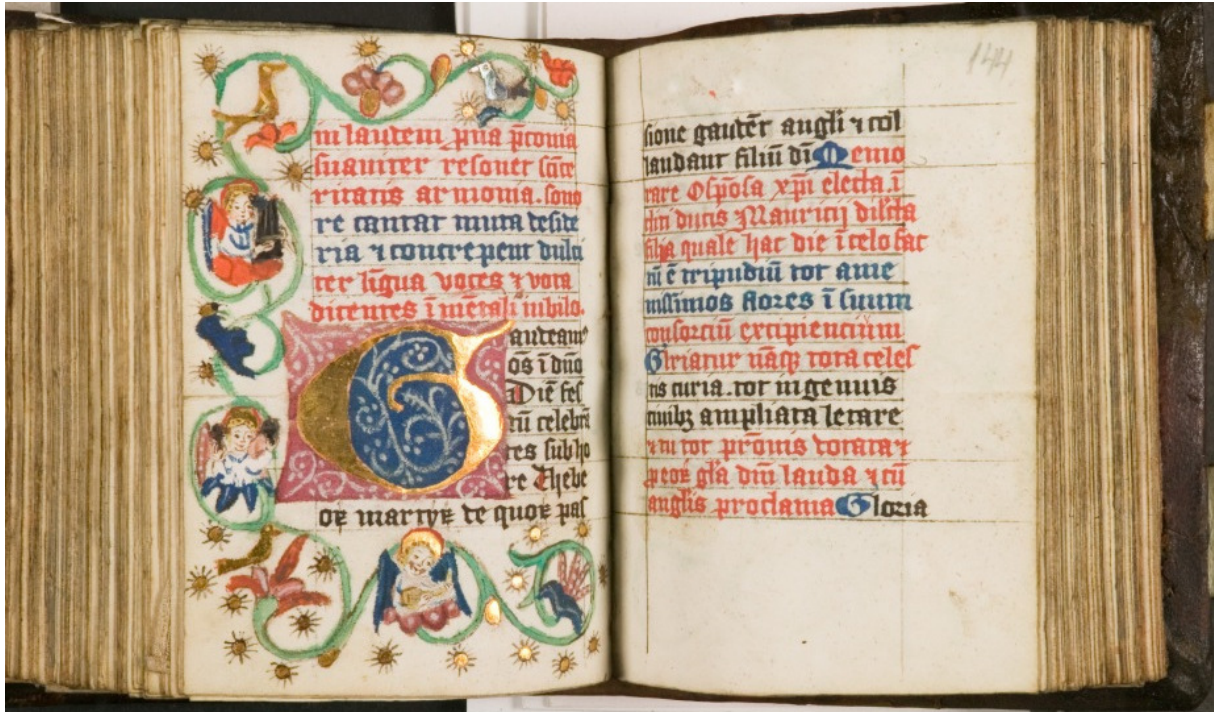 in laudem pña p̃conia
suauiter resonet sĩce
ritatis armonia. sono
re cantat muta deside
ria ⁊ concrepent dulci
ter lĩgua voces ⁊ vota
dicentes ĩ mẽtali iubilo.
Gaudeamꝰ
oẽs ĩ dño
Diẽ fes
tũ celebrã
tes sub ho
re Thebe
oꝝ martyꝝ de quoꝝ pas
144
sione gaudẽt angĩi ⁊ col
laudant filiũ dĩ Memo
rare O spõsa xp̃i electa. ĩ
cliti ducis Mauricij dilcta
filia quale hac die ĩ celo fac
tũ ẽ tripudiũ tot ame
nissimos flores ĩ suum
consorciũ excipiencium
Glriatur nãqꝫ tota celes
tis curia. tot ingenuis
ciuibꝫ ampliata letare
⁊ tu tot prõnis dotata ⁊
peoꝝ gĩa dñm lauda ⁊ cũ
angĩis proclama Gloria